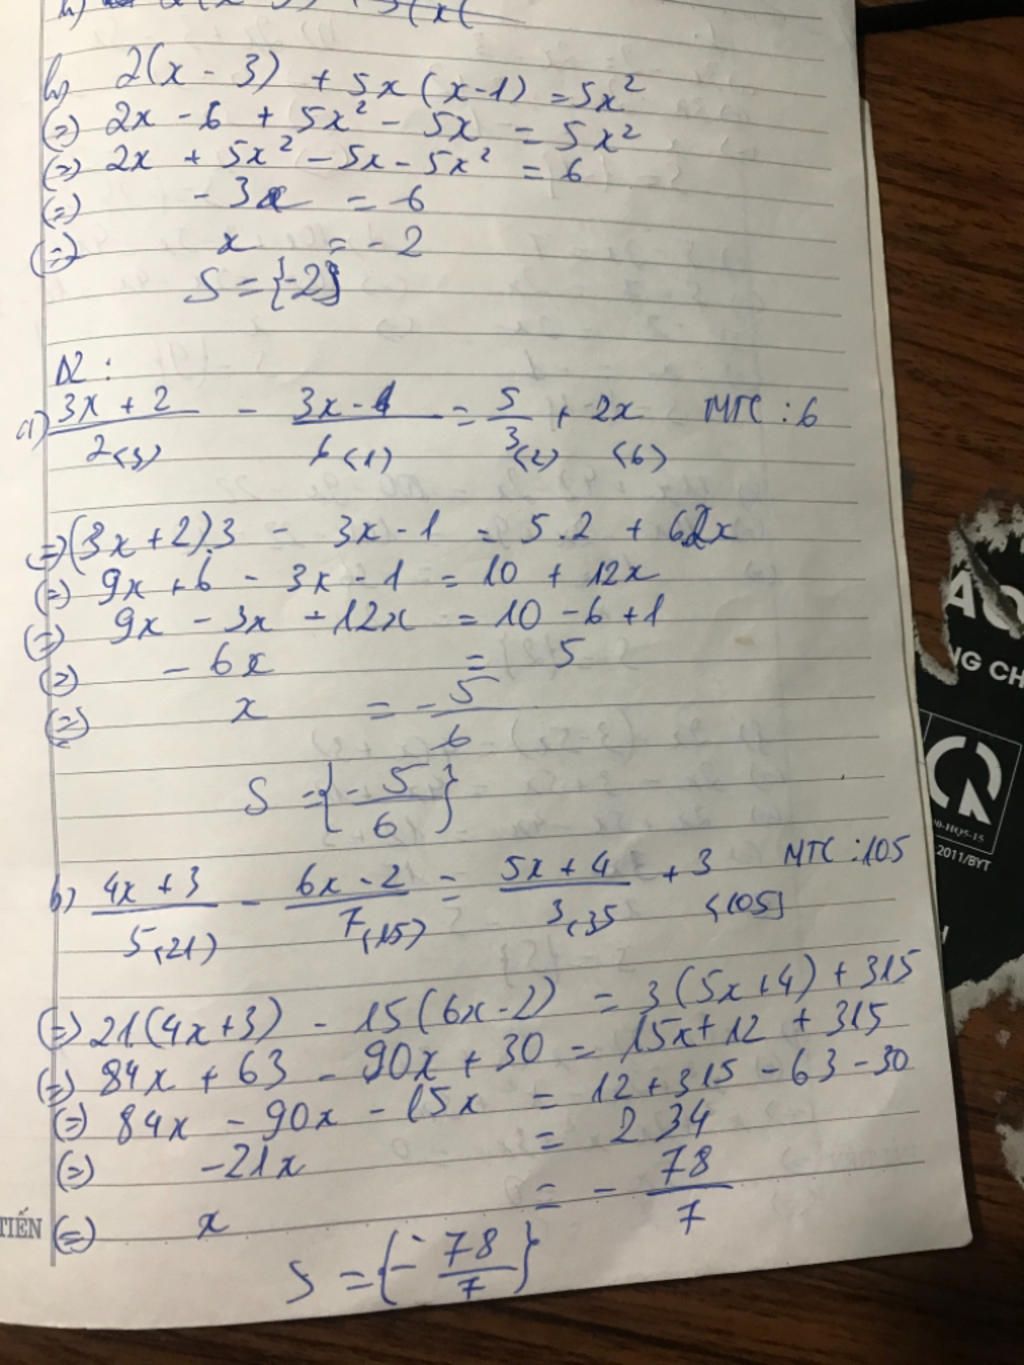 h) 2(x - 3) + 5x(x-1) = 5x²
(=) 2x - 6 + 5x² - 5x = 5x²
(=) 2x + 5x² - 5x - 5x² = 6
(=) - 3x = 6
(=) x = - 2
S = {-2}
B2 :
a) (3x + 2)/2(3) - (3x - 1)/6(1) = 5/3(2) + 2x (6) MTC : 6
=) (3x+2).3 - 3x - 1 = 5.2 + 6.2x
(=) 9x + 6 - 3x - 1 = 10 + 12x
(=) 9x - 3x - 12x = 10 - 6 + 1
(=) - 6x = 5
(=) x = - 5/6
S = {- 5/6}
b) (4x + 3)/5(21) - (6x - 2)/7(15) = (5x + 4)/3(35 + 3 (105) MTC : 105
(=) 21(4x+3) - 15(6x-2) = 3(5x+4) + 315
(=) 84x + 63 - 90x + 30 = 15x + 12 + 315
(=) 84x - 90x - 15x = 12 + 315 - 63 - 30
(=) -21x = 234
(=) x = - 78/7
S = {- 78/7}
TIẾN
NG CH
2011/BYT